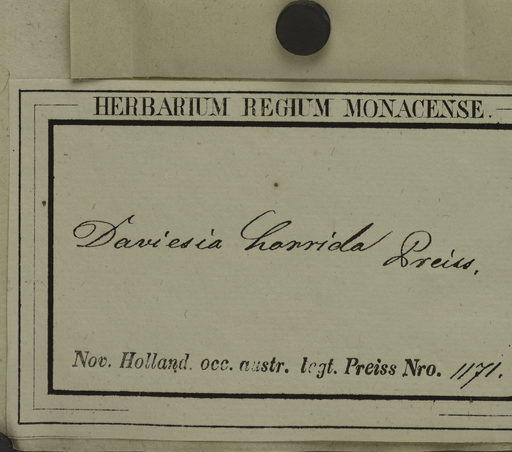 HERBARIUM REGIUM MONACENSE.
Daviesia horrida Preiss.
Nov. Holland. occ. austr. legt. Preiss Nro. 1171.